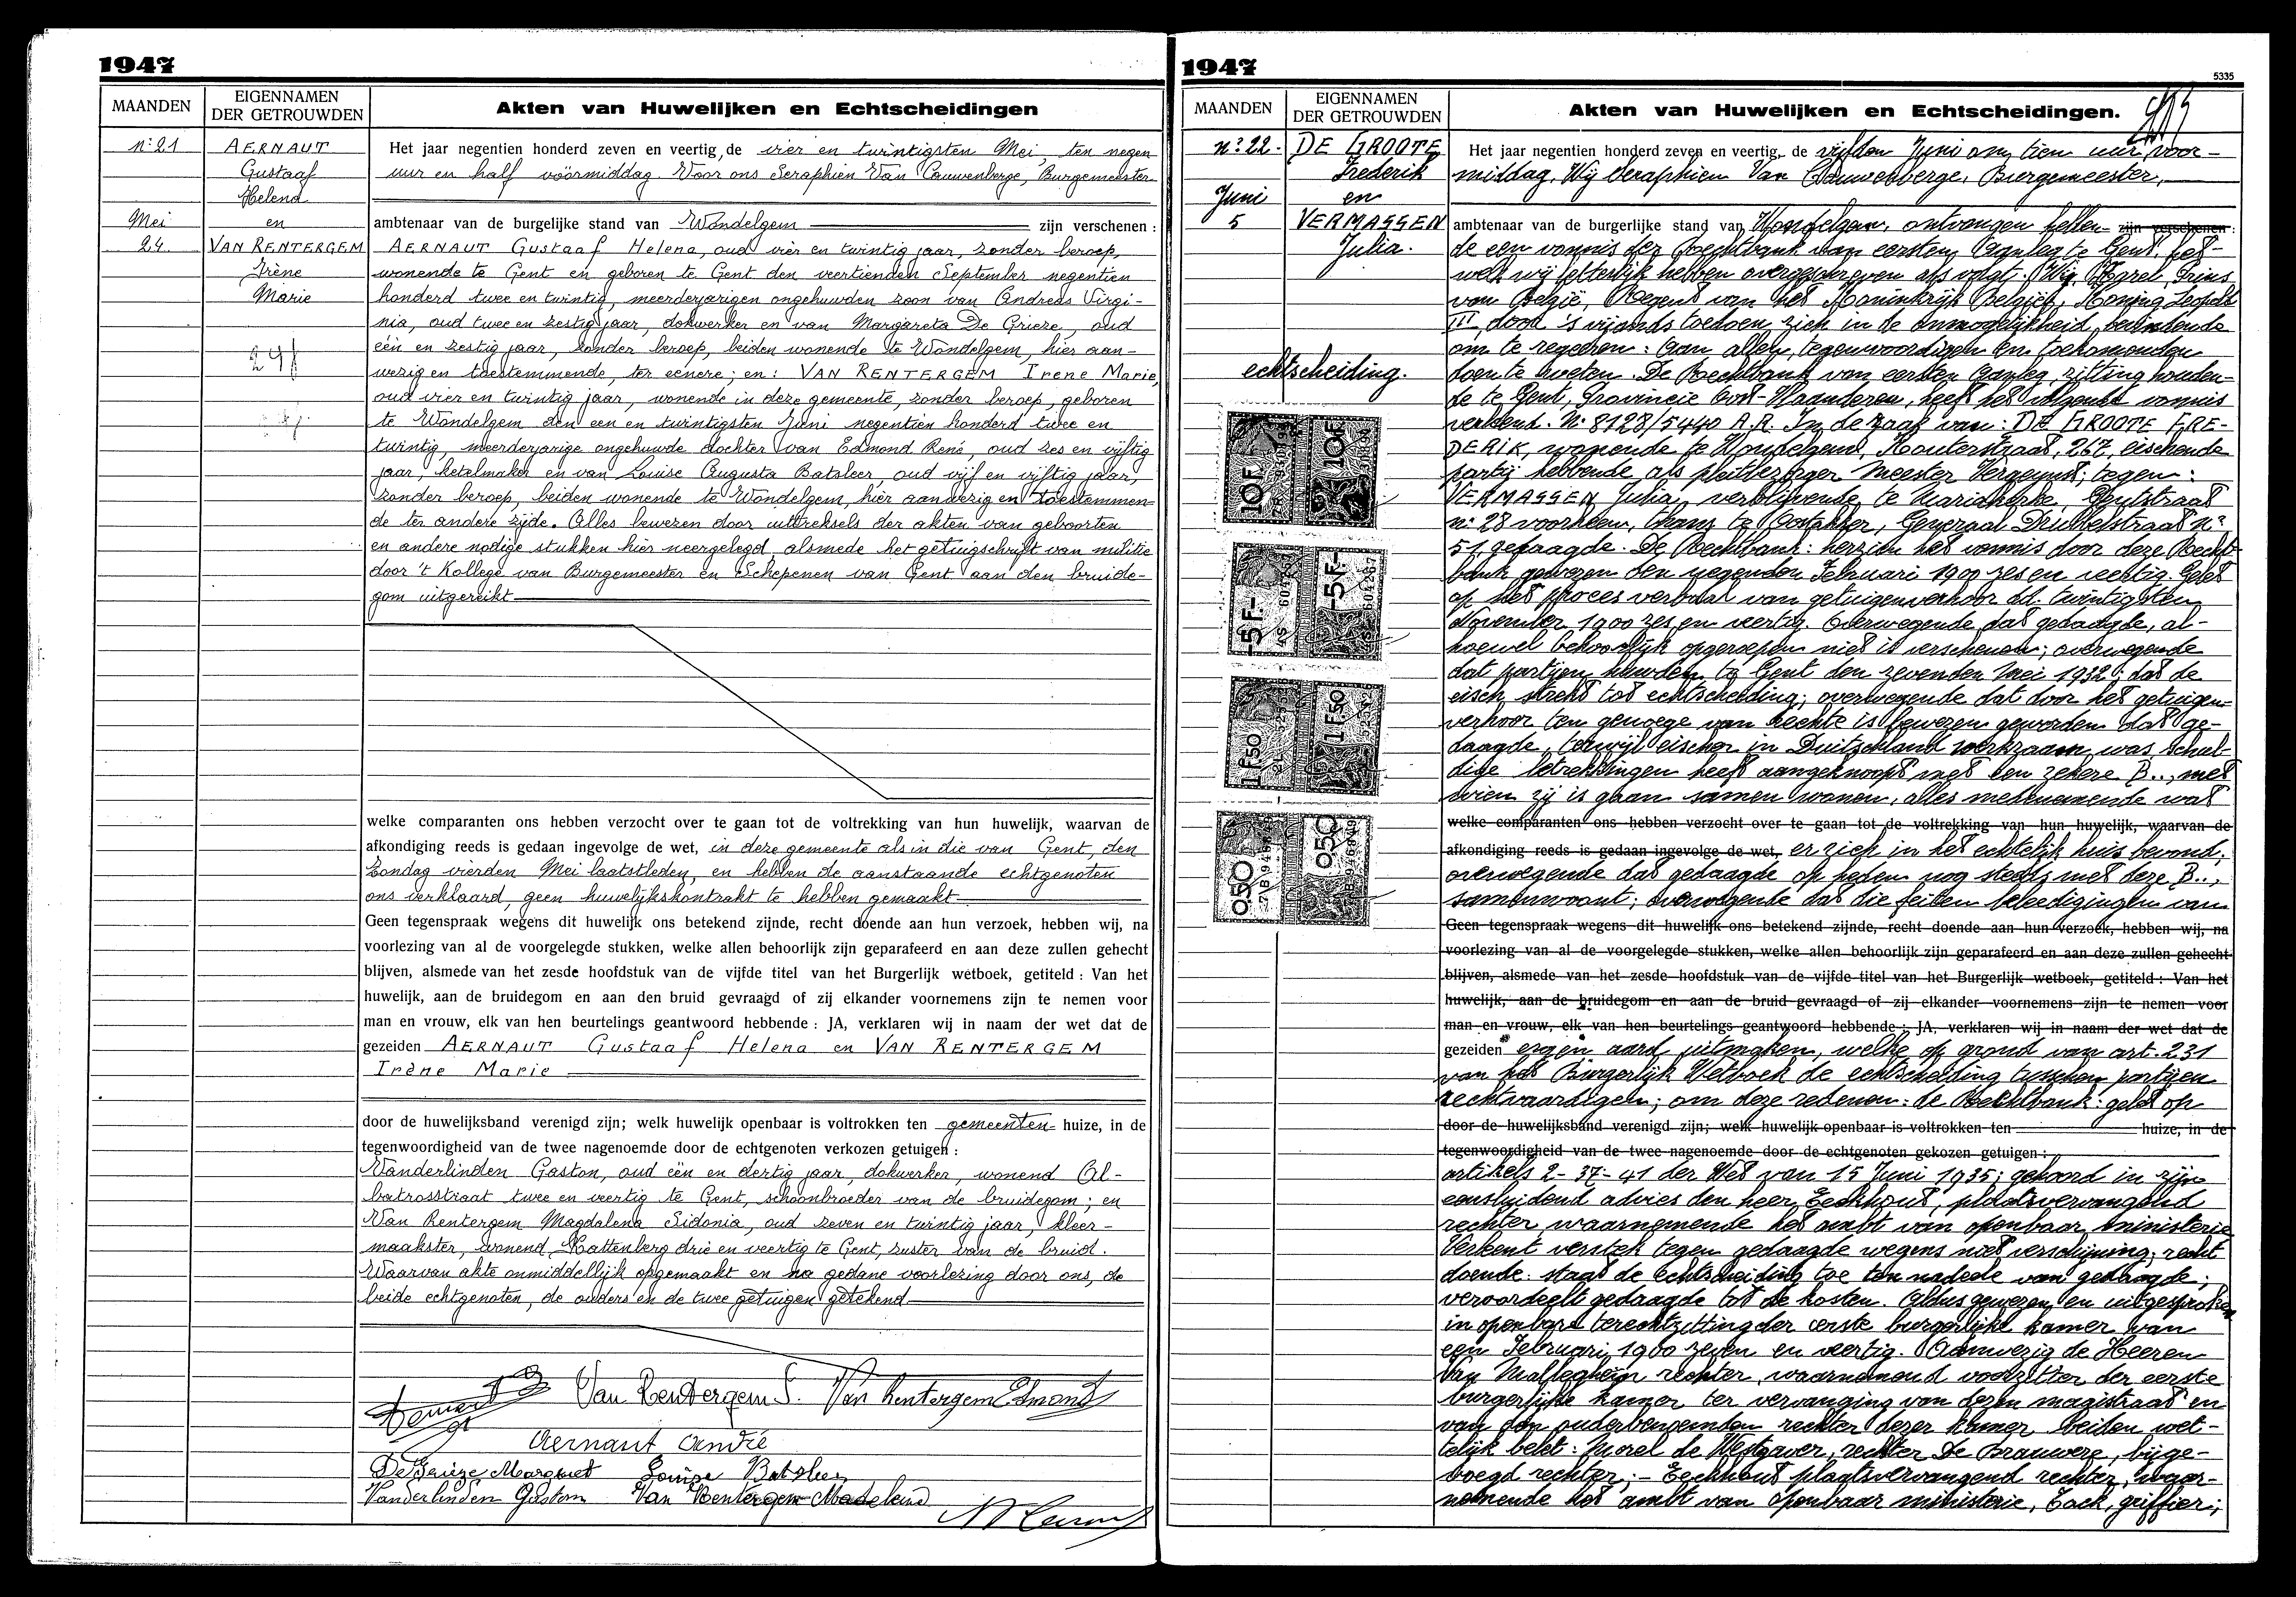 1947
MAANDEN
EIGENNAMEN
DER GETROUWDEN
Akten van Huwelijken en Echtscheidingen
n:21
AERNAUT
Gustaaf
Helena
Mei
en
24.
VAN RENTERGEM
Irène
Marie
Het jaar negentien honderd zeven en veertig, de vier en twintigsten Mei, ten negen
uur en half voormiddag. Voor ons Seraphien Van Cauwenberge, Burgemeester
ambtenaar van de burgelijke stand van Wondelgem zijn verschenen :
AERNAUT Gustaaf Helena, oud vier en twintig jaar, zonder beroep,
wonende te Gent en geboren te Gent den veertienden September negentien
honderd twee en twintig, meerderjarigen ongehuwden zoon van Andreas Virgi-
nia, oud twee en zestig jaar, dokwerker en van Margareta De Grieze, oud
één en zestig jaar, zonder beroep, beiden wonende te Wondelgem, hier aan-
wezig en toestemmende, ter eenere; en: VAN RENTERGEM Irene Marie,
oud vier en twintig jaar, wonende in deze gemeente, zonder beroep, geboren
te Wondelgem den een en twintigsten Juni negentien honderd twee en
twintig, meerderjarige ongehuwde dochter van Edmond René, oud zes en vijftig
jaar, ketelmaker en van Louise Augusta Batsleer, oud vijf en vijftig jaar,
zonder beroep, beiden wonende te Wondelgem, hier aanwezig en toestemmen-
de ter andere zijde. Alles bewezen door uittreksels der akten van geboorten
en andere nodige stukken hier neergelegd, alsmede het getuigschrift van militie
door 't Kollege van Burgemeester en Schepenen van Gent aan den bruide-
gom uitgereikt
welke comparanten ons hebben verzocht over te gaan tot de voltrekking van hun huwelijk, waarvan de
afkondiging reeds is gedaan ingevolge de wet, in deze gemeente als in die van Gent, den
Zondag vierden Mei laatstleden, en hebben de aanstaande echtgenoten
ons verklaard, geen huwelijkskontrakt te hebben gemaakt
Geen tegenspraak wegens dit huwelijk ons betekend zijnde, recht doende aan hun verzoek, hebben wij, na
voorlezing van al de voorgelegde stukken, welke allen behoorlijk zijn geparafeerd en aan deze zullen gehecht
blijven, alsmede van het zesde hoofdstuk van de vijfde titel van het Burgerlijk wetboek, getiteld : Van het
huwelijk, aan de bruidegom en aan den bruid gevraagd of zij elkander voornemens zijn te nemen voor
man en vrouw, elk van hen beurtelings geantwoord hebbende : JA, verklaren wij in naam der wet dat de
gezeiden AERNAUT Gustaaf Helena en VAN RENTERGEM
Irène Marie
door de huwelijksband verenigd zijn; welk huwelijk openbaar is voltrokken ten gemeenten huize, in de
tegenwoordigheid van de twee nagenoemde door de echtgenoten verkozen getuigen :
Vanderlinden Gaston, oud één en dertig jaar, dokwerker, wonend Al-
batrosstraat twee en veertig te Gent, schoonbroeder van de bruidegom; en
Van Rentergem Magdalena Sidonia, oud zeven en twintig jaar, kleer-
maakster, wonend Kattenberg drie en veertig te Gent, zuster van de bruid.
Waarvan akte onmiddellijk opgemaakt en na gedane voorlezing door ons, de
beide echtgenoten, de ouders en de twee getuigen getekend
Van Rentergem I. Van Rentergem Edmond
Aernaut André
De Grieze Margriet Louise Batsleer
Vanderlinden Gaston Van Rentergem Madeleine
1947
5335
MAANDEN
EIGENNAMEN
DER GETROUWDEN
Akten van Huwelijken en Echtscheidingen.
n: 22-
DE GROOTE
Frederik
Juni
en
5
VERMASSEN
Julia.
echtscheiding.
10F
10F
-5F-
-5F-
1F50
1F50
0,50
0,50
Het jaar negentien honderd zeven en veertig, de vijfden Juni om tien uur voor-
middag, Wij Seraphien Van Cauwenberge, Burgemeester,
ambtenaar van de burgerlijke stand van Wondelgem, ontvangen hebben- zijn verschenen :
de een vonnis der Rechtbank van eersten Aanleg te Gent, het-
welk wij letterlijk hebben overgeschreven als volgt: Wij, Karel, Prins
van België, Regent van het Koninkrijk België, Koning Leopold
III door 's vijands toedoen zich in de onmogelijkheid bevindende
om te regeeren: Aan allen, tegenwoordigen en toekomenden
doen te weten. De Rechtbank van eersten aanleg, zitting houden-
de te Gent, Provincie Oost-Vlaanderen, heeft het volgende vonnis
verleend. N: 8128/5440 A.R. In de zaak van: DE GROOTE FRE-
DERIK, wonende te Wondelgem, Kouterstraat, 267, eischende
partij hebbende als pleitbezorger Meester Vergeynst; tegen:
VERMASSEN Julia, verblijvende te Mariakerke, straat
n: 28 voorheen, thans te Oostakker, Generaal Drubbelstraat n:
51, gedaagde. De Rechtbank: herzien het vonnis door deze Recht-
bank gewezen den negenden Februari 1900 zes en veertig. Gelet
op het proces verbaal van getuigenverhoor dd. twintigsten
November 1900 zes en veertig. Overwegende dat gedaagde, al-
hoewel behoorlijk opgeroepen niet is verschenen; overwegende
dat partijen huwden te Gent den zevenden Mei 1932; dat de
eisch strekt tot echtscheiding; overwegende dat door het getuigen-
verhoor ten genoege van rechte is bewezen geworden dat ge-
daagde, terwijl eischer in Duitschland werkzaam was, schul-
dige betrekkingen heeft aangeknoopt met een zekere B.., met
wien zij is gaan samen wonen, alles medenemende wat
welke comparanten ons hebben verzocht over te gaan tot de voltrekking van hun huwelijk, waarvan de
afkondiging reeds is gedaan ingevolge de wet, er zich in het echtelijk huis bevond;
overwegende dat gedaagde op heden nog steeds met deze B..,
samenwoont; overwegende dat die feiten beleedigingen van
Geen tegenspraak wegens dit huwelijk ons betekend zijnde, recht doende aan hun verzoek, hebben wij, na
voorlezing van al de voorgelegde stukken, welke allen behoorlijk zijn geparafeerd en aan deze zullen gehecht
blijven, alsmede van het zesde hoofdstuk van de vijfde titel van het Burgerlijk wetboek, getiteld : Van het
huwelijk, aan de bruidegom en aan de bruid gevraagd of zij elkander voornemens zijn te nemen voor
man en vrouw, elk van hen beurtelings geantwoord hebbende : JA, verklaren wij in naam der wet dat de
gezeiden ergen aard uitmaken, welke op grond van art. 231
van het Burgerlijk Wetboek de echtscheiding tusschen partijen
rechtvaardigen; om deze redenen: de Rechtbank: gelet op
door de huwelijksband verenigd zijn; welk huwelijk openbaar is voltrokken ten huize, in de
tegenwoordigheid van de twee nagenoemde door de echtgenoten gekozen getuigen :
artikels 2-37-41 der Wet van 15 Juni 1935; gehoord in zijn
eensluidend advies den heer Eeckhout, plaatsvervangend
rechter waarnemende het ambt van openbaar ministerie
Verleent verstek tegen gedaagde wegens niet verschijning; recht
doende: staat de echtscheiding toe ten nadeele van gedaagde;
veroordeelt gedaagde tot de kosten. Aldus gewezen en uitgesproken
in openbare terechtzitting der eerste burgerlijke kamer van
een Februari 1900 zeven en veertig. Aanwezig de Heeren
Van Malleghem rechter, waarnemend voorzitter der eerste
burgerlijke kamer ter vervanging van dezen magistraat en
van den ouderbenoemden rechter dezer kamer, beiden wet-
telijk belet: Morel de Westgaver, rechter De Brauwere, bijge-
voegd rechter; - Eeckhout plaatsvervangend rechter, waar-
nemende het ambt van openbaar ministerie, Cock, griffier;